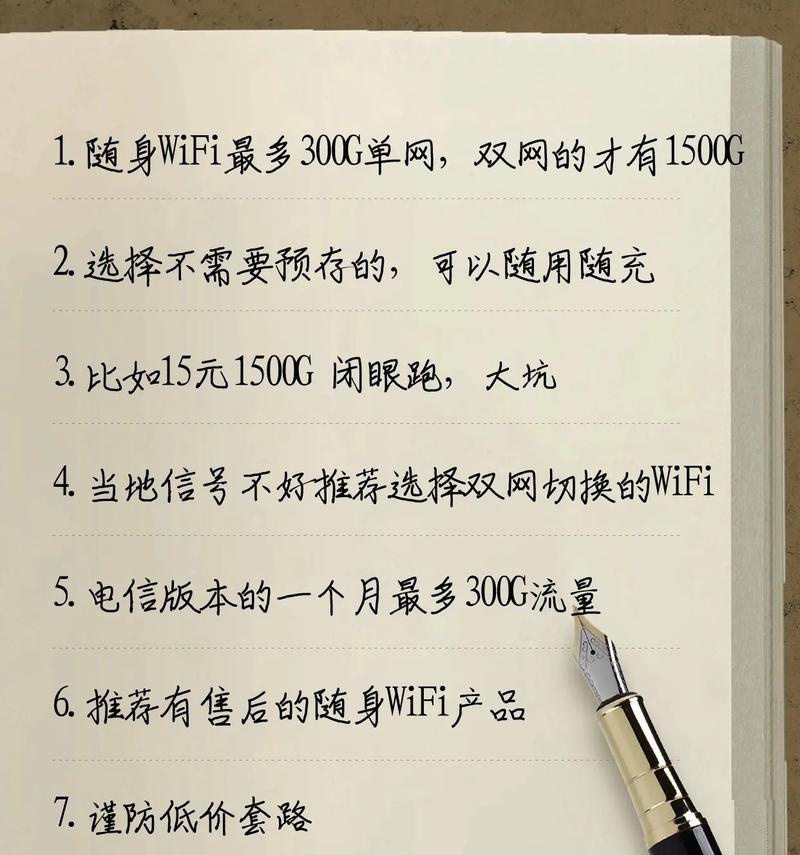 1. 随身WiFi最多300G单网，双网的才有1500G
2. 选择不需要预存的，可以随用随充
3. 比如15元1500G 闭眼跑，大坑
4. 当地信号不好推荐选择双网切换的WiFi
5. 电信版本的一个月最多300G流量
6. 推荐有售后的随身WiFi产品
7. 谨防低价套路